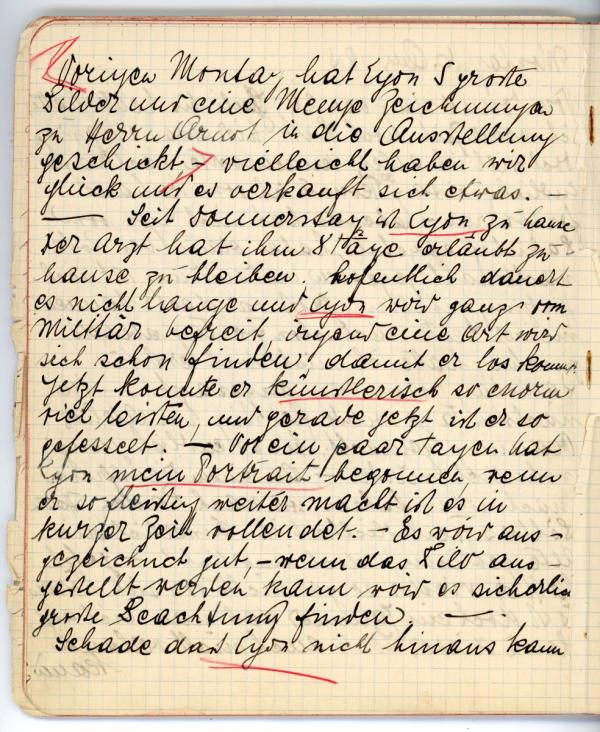 Vorigen Montag hat Egon 5 große
Bilder und eine Menge Zeichnungen
zu Herrn Arnot in die Ausstellung
geschickt – vielleicht haben wir
glück und es verkauft sich etwas. –
— Seit Donnerstag ist Egon zu hause
Der Arzt hat ihm 8 täge erläubt zu
hause zu bleiben. hofentlich dauert
es nicht lange und Egon wird ganz vom
Militär befreit, irgend eine Art wird
sich schon finden, damit er los kommt
Jetzt konnte er künstlerisch so enorm
viel leisten, und gerade jetzt ist er so
gefesselt. – Vor ein paar tagen hat
Egon mein Portrait begonnen, wenn
er so fleißig weiter macht ist es in
kurzer Zeit vollendet. – Es wird aus-
gezeichnet gut, – wenn das Bild aus-
gestellt werden kann wird es sicherlich
große Beachtung finden. —
Schade daß Egon nicht hinaus kann